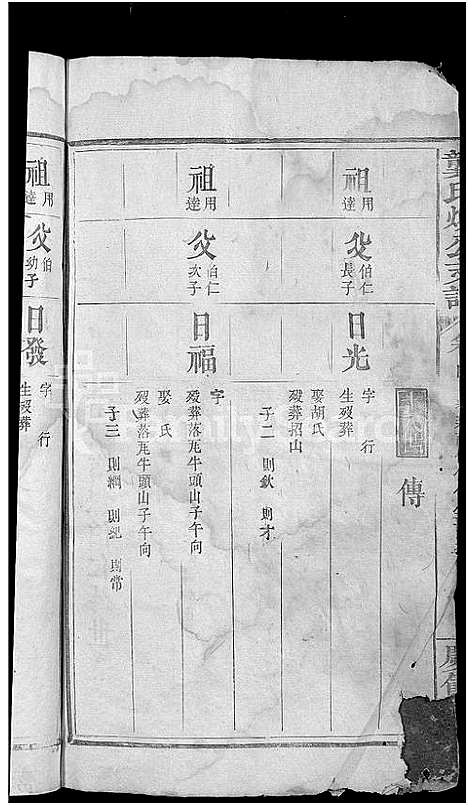 傳
祖 用達
父 伯仁長子
日光
字 行
生歿葬
娶胡氏
歿葬招山
子二 則欽 則才
祖 用達
父 伯仁次子
日福
字
歿葬落瓦牛頭山子午向
娶 氏
歿葬落瓦牛頭山子午向
子三 則綱 則紀 則常
祖 用達
父 伯 幼子
日發
字 行
生歿葬